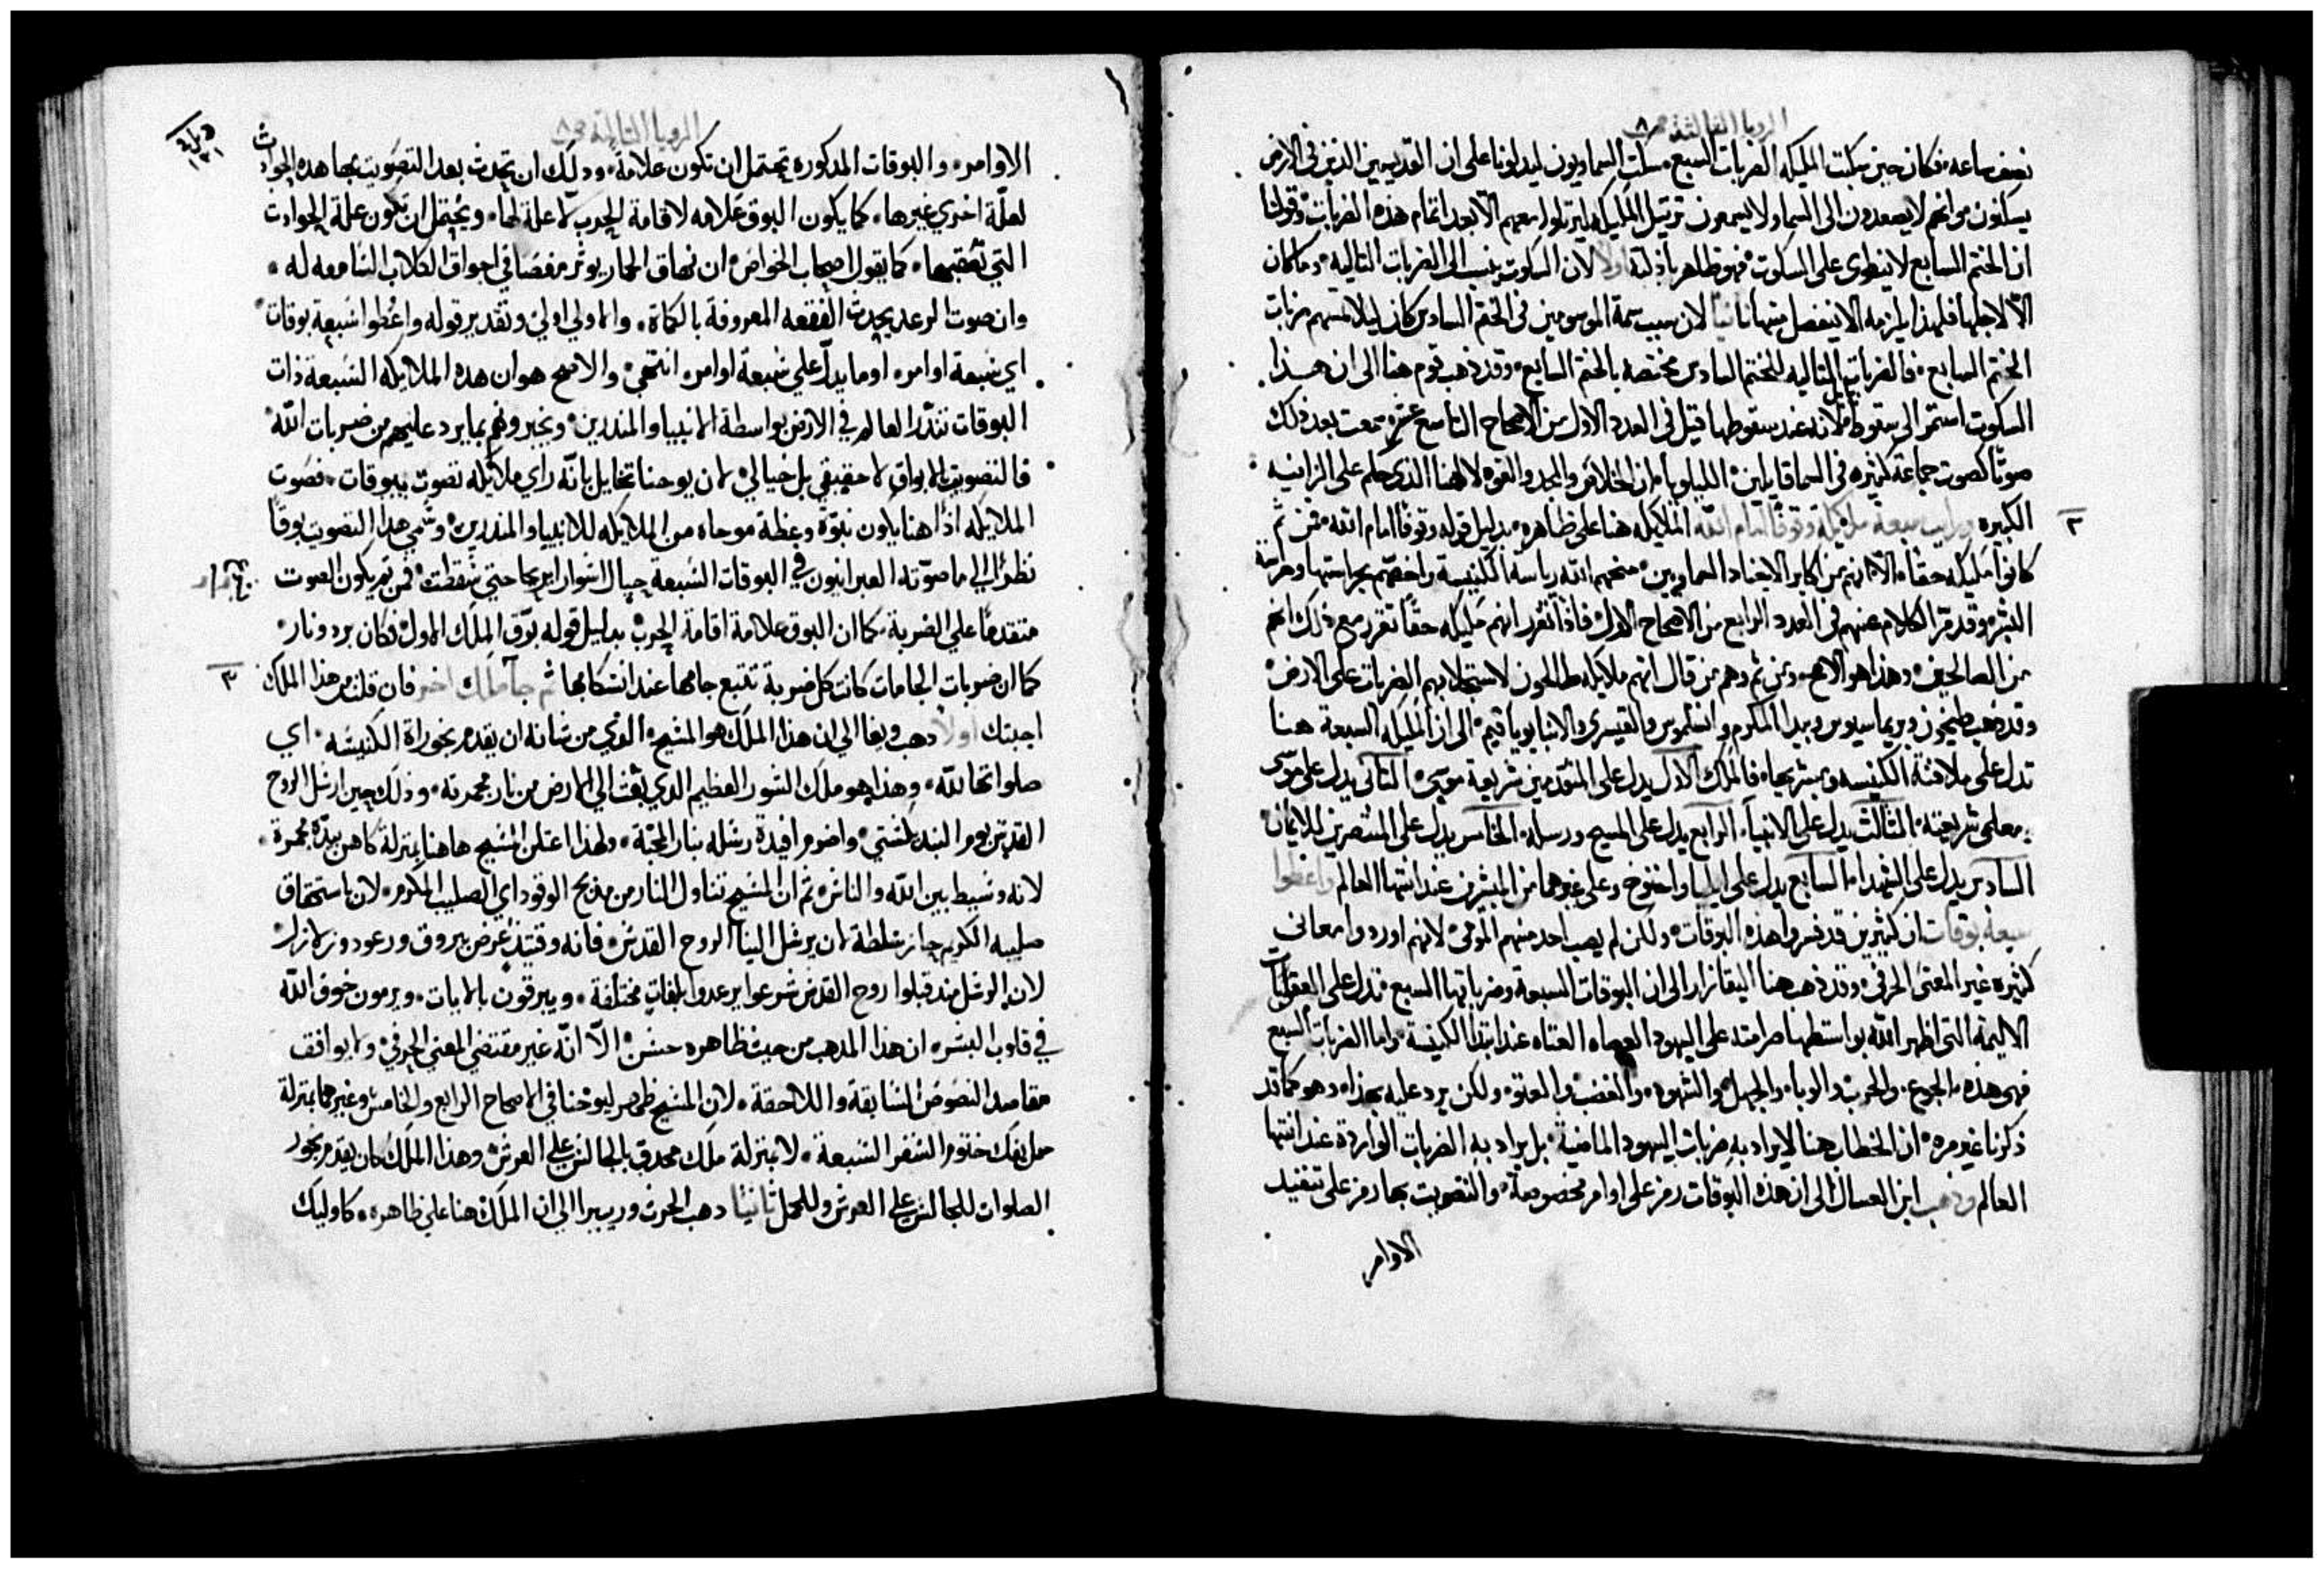 الرويا الثالثة ص ٨
نصف ساعه، فكان حين سكبت المليكه الضربات السبع، سكت السماويون ليدلونا على ان القديسين الذين في الارض
يسكنون من انهم لا يصعدون الى السما ولا يسمعون ترتيل المليكه ليرتلوا معهم الا بعد اتمام هذه الضربات، وقولنا
ان الختم السابع لا ينطوى على السكوت، فهو ظاهر باذلته اولاً لان السكوت ينسب الى الضربات التاليه، وما كان
الا لاجلها فلهذا يلزمه الا ينفصل منها ثانياً لان سبب سمة الموسومين في الختم السادس كان ليلا تمسهم ضربات
الختم السابع، فالضربات التاليه للختم السادس مختصه بالختم السابع، وقد ذهب قوم هنا الى ان هذا
السكوت استمر الى سقوط لانه عند سقوطها قيل في العدد الاول من الاصحاح التاسع عشر، سمعت بعد ذلك
صوتاً كصوت جماعة كثيره في السما قايلين، الليلويا، ان الخلاص والمجد والقوه لالهنا الذي حكم على الزانيه
٢ الكبيره ورايت سبعة ملايكة وقوفاً امام الله الملايكه هنا على ظاهره، بدليل قوله وقوفاً امام الله، فمن ثم
كانوا مليكه حقاً، الا انهم من اكابر الاجناد السماويين، منحهم الله رياسة الكنيسة واخصهم بحراستها وحراسة
البشر، وقد مر الكلام عنهم في العدد الرابع من الاصحاح الاول، فاذا تقرر انهم مليكه حقاً تقرر مع ذلك انهم
من الصالحين، وهذا هو الاصح، ومن ثم وهم من قال انهم ملايكه طالحون لاستجلابهم الضربات على الارض،
وقد ذهب طيخون وبريماسيوس وبيدا المكرم وانسلموس والقيسرى والانبا يوياقيم، الى ان المليكه السبعة هنا
تدل على ملافنة الكنيسه ومبشريها، فالملك الاول يدل على المتقدمين شريعة موسى، الثاني يدل على موسى
ومعلمى شريعته، الثالث يدل على الانبياء، الرابع يدل على المسيح ورسله، الخامس يدل على المنتصرين للايمان،
السادس يدل على الشهدا، السابع يدل على ايليا واخنوخ وعلى غيرهما من المبشرين عند انتها العالم واعطوا
سبعة بوقات ان كثيرين قد فسروا هذه البوقات، ولكن لم يصب احد منهم المرمى، لانهم اوردوا معانى
كثيره غير المعنى الحرفى، وقد ذهب هنا اليقازار الى ان البوقات السبعة وضرباتها السبع تدل على العقوبات
الاليمة التى اظهر الله بواسطتها صرامته على اليهود العصاه العتاه عند ابتدا الكنيسة، واما الضربات السبع
فهى هذه، الجوع، والحرب، والوباء، والجهل، والشهوه، والغضب، والعتو، ولكن يرد عليه بهذا، وهو كما قد
ذكرنا غير مره، ان الخطاب هنا لا يراد به ضربات اليهود الماضية، بل يراد به الضربات الواردة عند انتها
العالم وذهب ابن العسال الى ان هذه البوقات رمز على اوامر مخصوصة، والتصويت بها رمز على تنفيذ
الاوامر
الرويا الثالثة ص ٨
الاوامر، والبوقات المدكوره تحتمل ان تكون علامة، ودلك ان تحدث بعد التصويت بها هده الحوادث
لعلّة اخري غيرها، كما يكون البوق علامه لاقامة الحرب لا علة لها، ويحتمل ان تكون علة الحوادث
التي تعقبها، كما يقول اصحاب الخواص، ان نهاق الحمار يوثر مغصا في اجواق الكلاب السامعه له،
وان صوت الرعد يحدث الفقعه المعروفة بالكماة، والاولي اولي، وتقدير قوله واعطوا سبعة بوقات،
اي سبعة اوامر، او ما يدل علي سبعة اوامر، انتهي، والاصح هو ان هده الملايكه السبعة ذات
البوقات تندر العالم في الارض بواسطة الانبيا والمندرين، ويخبرونهم بما يرد عليهم من ضربات الله،
فالتصويت بالابواق لا حقيقي بل خيالي، لان يوحنا تخايل بانّه راي ملايكه تصوت ببوقات، فصوت
الملايكه اذًا هنا يكون نبوّة وعظة موحاه من الملايكه للانبيا والمندرين، وسُمي هدا التصويت بوقاً
نظراً الي ما صوّته العبرانيون في البوقات السبعة حيال اسوار اريحا حتي سقطت، فمن ثم يكون الصوت
متقدماً علي الضربة، كما ان البوق علامة اقامة الحرب، بدليل قوله بوّق الملك الاول، فكان برد ونار،
٣ كما ان ضربات الجامات كانت كل ضربة تتبع جامها عند انسكابها ثم جآ ملك اخر فان قلت من هذا الملك
اجبتك اولاً دهب ويغا الي ان هذا الملك هو المسيح، الذي من شانه ان يقدم بخوراة الكنيسه، اي
صلواتها لله، وهذا هو ملاك الشور العظيم الدي بعث الي الارض من نار مجمرته، وذلك حين ارسل الروح
القدس يوم البنديكستي، واضرم افيدة رسله بنار المحبّة، ولهذا اعتلن المسيح هاهنا بمنزلة كاهن بيده مجمرة،
لانه وسيط بين الله والناس، ثم ان المسيح تناول النار من مذبح الوقود اي الصليب المكرم، لان باستحقاق
صليبه الكريم حاز سلطة لان يرسل الينا الروح القدس، فانه وقتيذ عرض بروق ورعود وزلازل،
لان الرسل مند قبلوا روح القدس شرعوا يرعدوا بلغات مختلفة، ويبرقون بالايات، ويرمون خوف الله
في قلوب البشر، ان هذا المدهب من حيث ظاهره حسن، الّا انّه غير مقتضي المعني الحرفي، ولا يوافق
مقاصد النصوص السابقة واللاحقة، لان المسيح ظهر ليوحنا في الاصحاح الرابع والخامس وغيرهما بمنزلة
حمل يفك ختوم السفر السبعة، لا بمنزلة ملك محدق بالجالس علي العرش، وهذا الملك كان يقدم بخور
الصلوات للجالس علي العرش وللحمل ثانياً دهب الحرث وريبيرا الي ان الملك هنا علي ظاهره، كاوليك